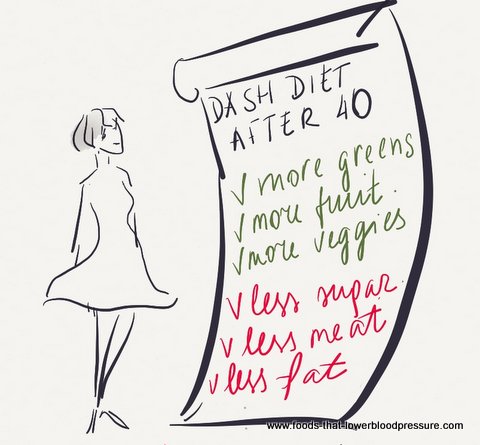 DASH DIET
AFTER 40
√ more greens
√ more fruit.
√ more veggies
√ less sugar.
√ less meat
√ less fat
www.foods-that-lowerbloodpressure.com